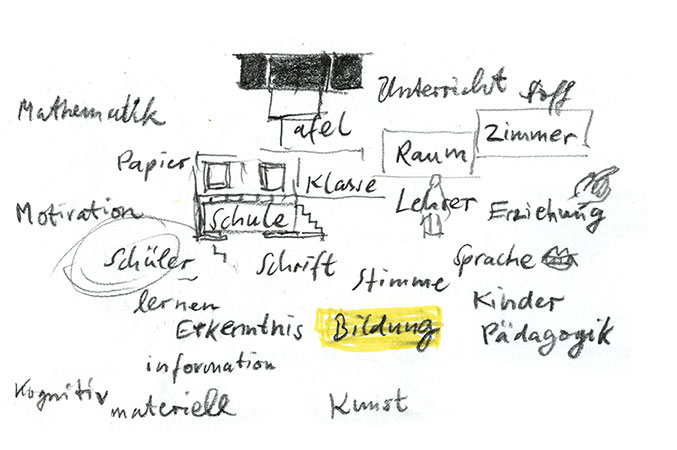 Unterricht Stoff
Mathematik
Tafel
Zimmer
Papier
Raum
Klasse
Motivation
Schule
Lehrer
Erziehung
Schüler
Schrift
Sprache
Stimme
lernen
Kinder
Erkenntnis
Bildung
Pädagogik
information
Kognitiv
materiell
Kunst